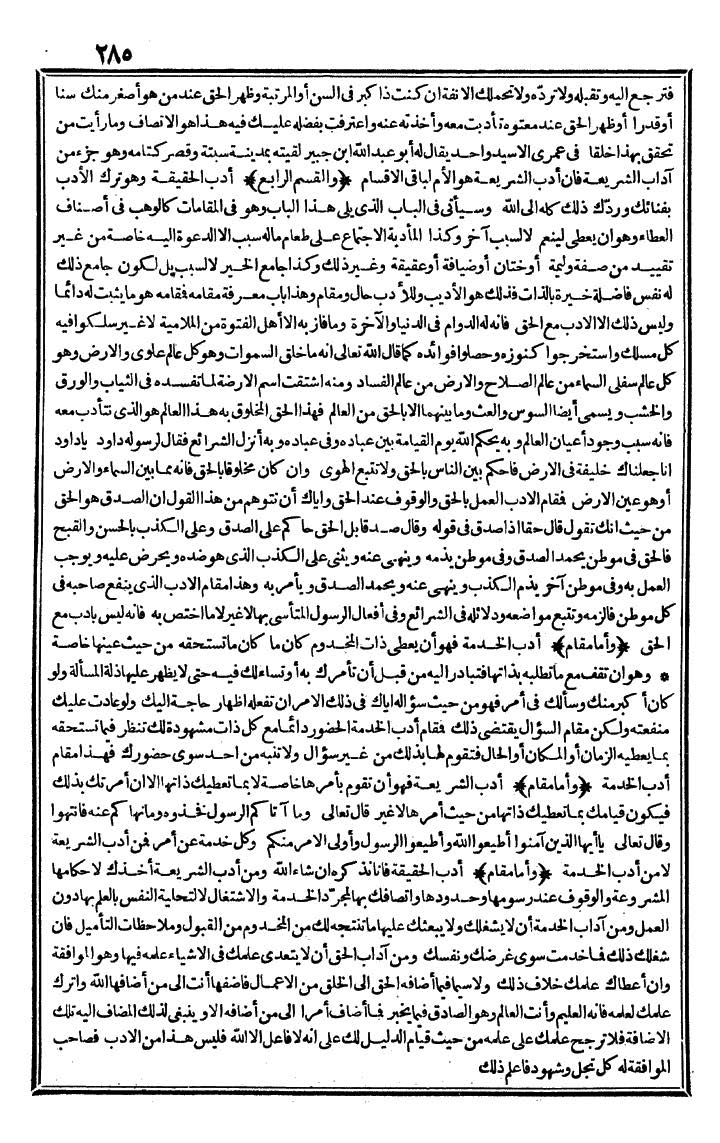 ٢٨٥
فترجع اليه وتقبله ولا تردّه ولا تحملك الانفة ان كنت ذا كبر فى السن أو المرتبة وظهر الحق عند من هو أصغر منك سنا
أو قدرا أو ظهر الحق عند معتوه تأدبت معه وأخذته عنه واعترفت بفضله عليك فيه هذا هو الانصاف وما رأيت من
تحقق بهذا خلقا فى عمرى الا سيد واحد يقال له أبو عبد الله ابن جبير لقيته بمدينة سبتة وقصر كتامه وهو جزء من
آداب الشريعة فان أدب الشريعة هو الأم لباقى الاقسام ﴿والقسم الرابع﴾ أدب الحقيقة وهو ترك الأدب
بفنائك وردّك ذلك كله الى الله وسيأتى فى الباب الذى يلى هذا الباب وهو فى المقامات كالوهب فى أصناف
العطاء وهو ان يعطى لينعم لا لسبب آخر وكذا المأدبة الاجتماع على طعام ماله سبب الا الدعوة اليه خاصة من غير
تقييد من صفة وليمة أو ختان أو ضيافة أو عقيقة وغير ذلك وكذا جامع الخير لا لسبب بل لكون جامع ذلك
له نفس فاضلة خيرة بالذات فذلك هو الأديب وللأدب حال ومقام وهذا باب معرفة مقامه فقامه هو ما يثبت له دائما
وليس ذلك الا الادب مع الحق فانه له الدوام فى الدنيا والآخرة وما فاز به الا أهل الفتوة من الملامية لا غير سلكوا فيه
كل مسلك واستخرجوا كنوزه وحصلوا فوائده كما قال الله تعالى انه ما خلق السموات وهو كل عالم علوى والارض وهو
كل عالم سفلى السماء من عالم الصلاح والارض من عالم الفساد ومنه اشتقت اسم الارضة لما تفسده فى الثياب والورق
والخشب ويسمى أيضا السوس والعث وما بينهما الا بالحق من العالم فهذا الحق المخلوق به هذا العالم هو الذى تتأدب معه
فانه سبب وجود أعيان العالم وبه يحكم الله يوم القيامة بين عباده وفى عباده وبه أنزل الشرائع فقال لرسوله داود ياداود
انا جعلناك خليفة فى الارض فاحكم بين الناس بالحق ولا تتبع الهوى وان كان مخلوقا بالحق فانه مما بين السماء والارض
أو هو عين الارض فمقام الادب العمل بالحق والوقوف عند الحق واياك أن تتوهم من هذا القول ان الصدق هو الحق
من حيث انك تقول قال حقا اذا صدق فى قوله وقال صدقا بل الحق حاكم على الصدق وعلى الكذب بالحسن والقبح
فالحق فى موطن يحمد الصدق وفى موطن يذمه وينهى عنه ويثنى على الكذب الذى هو ضده ويحرض عليه ويوجب
العمل به وفى موطن آخر يذم الكذب وينهى عنه ويحمد الصدق ويأمر به وهذا مقام الادب الذى ينفع صاحبه فى
كل موطن فالزمه وتتبع مواضعه ودلائله فى الشرائع وفى أفعال الرسول المتأسى بها لا غير لا ما اختص به فانه ليس بادب مع
الحق ﴿وأما مقام﴾ أدب الخدمة فهو أن يعطى ذات المخدوم كان ما كان ما تستحقه من حيث عينها خاصة
* وهو ان تقف مع ما تطلبه بذاتها فتبادر اليه من قبل أن تأمرك به أو تسألك فيه حتى لا يظهر عليها ذلة المسألة ولو
كان أكبر منك وسألك فى أمر فهو من حيث سؤاله اياك فى ذلك الامر ان تفعله اظهار حاجة اليك ولو عادت عليك
منفعته ولكن مقام السؤال يقتضى ذلك فمقام أدب الخدمة الحضور دائما مع كل ذات مشهودة لك تنظر فيما تستحقه
بما يعطيه الزمان أو المكان أو الحال فتقوم لها بذلك من غير سؤال ولا تنبه من احد سوى حضورك فهذا مقام
أدب الخدمة ﴿وأما مقام﴾ أدب الشريعة فهو أن تقوم بأمرها خاصة لا بما تعطيك ذاتها الا ان أمرتك بذلك
فيكون قيامك بما تعطيك ذاتها من حيث أمرها لا غير قال تعالى وما آتاكم الرسول فخذوه وما نهاكم عنه فانتهوا
وقال تعالى ياأيها الذين آمنوا أطيعوا الله وأطيعوا الرسول وأولى الامر منكم وكل خدمة عن أمر فمن أدب الشريعة
لا من أدب الخدمة ﴿وأما مقام﴾ أدب الحقيقة فانا نذكره ان شاء الله ومن أدب الشريعة أخذك لاحكامها
المشروعة والوقوف عند رسومها وحدودها واتصافك بها لمجرّد الخدمة والاشتغال لا لتحلية النفس بالعلم بها دون
العمل ومن آداب الخدمة أن لا يشغلك ولا يبعثك عليها ما تنتجه لك من المخدوم من القبول وملاحظات التأميل فان
شغلك ذلك فما خدمت سوى غرضك ونفسك ومن آداب الحق أن لا يتعدى علمك فى الاشياء علمه فيها وهو الموافقة
وان أعطاك علمك خلاف ذلك ولا سيما فيما أضافه الحق الى الخلق من الاعمال فاضفها أنت الى من أضافها الله واترك
علمك لعلمه فانه العليم وأنت العالم وهو الصادق فيما يخبر فما أضاف أمرا الى من أضافه الا وينبغى لذلك المضاف اليه تلك
الاضافة فلا ترجح علمك على علمه من حيث قيام الدليل لك على انه لا فاعل الا الله فليس هذا من الادب فصاحب
الموافقة له كل تجل وشهود فاعلم ذلك